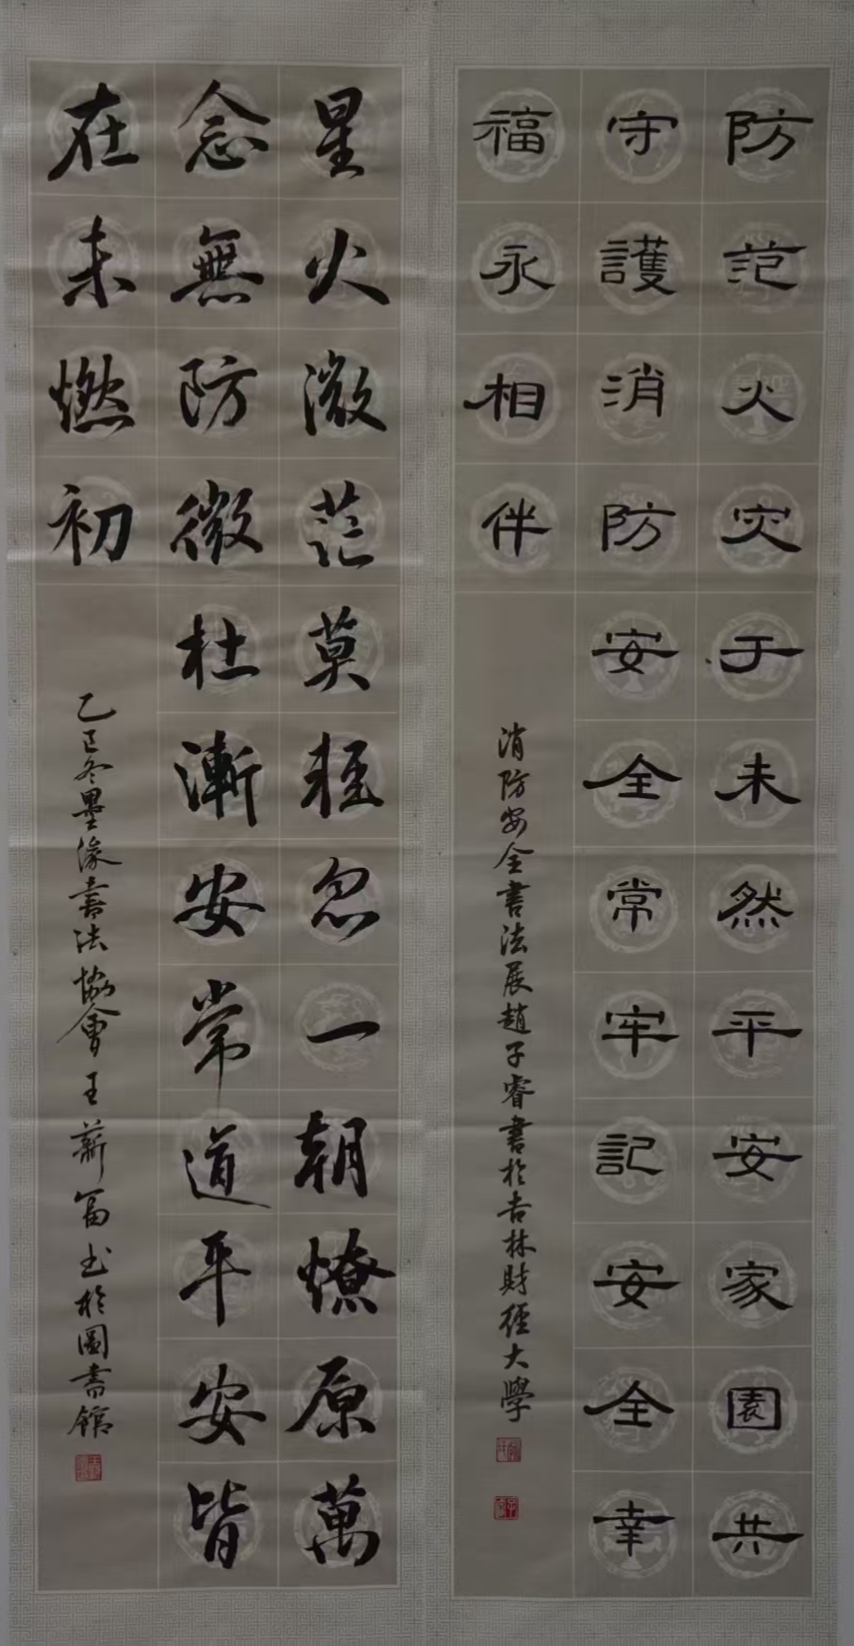 防范火灾于未然平安家園共
守護消防安全常牢記安全幸
福永相伴
消防安全書法展趙子睿書於吉林財經大學
星火微茫莫輕忽一朝燎原萬
念無防微杜漸安常道平安皆
在未燃初
乙巳冬墨缘書法協會王薪富书於圖書館